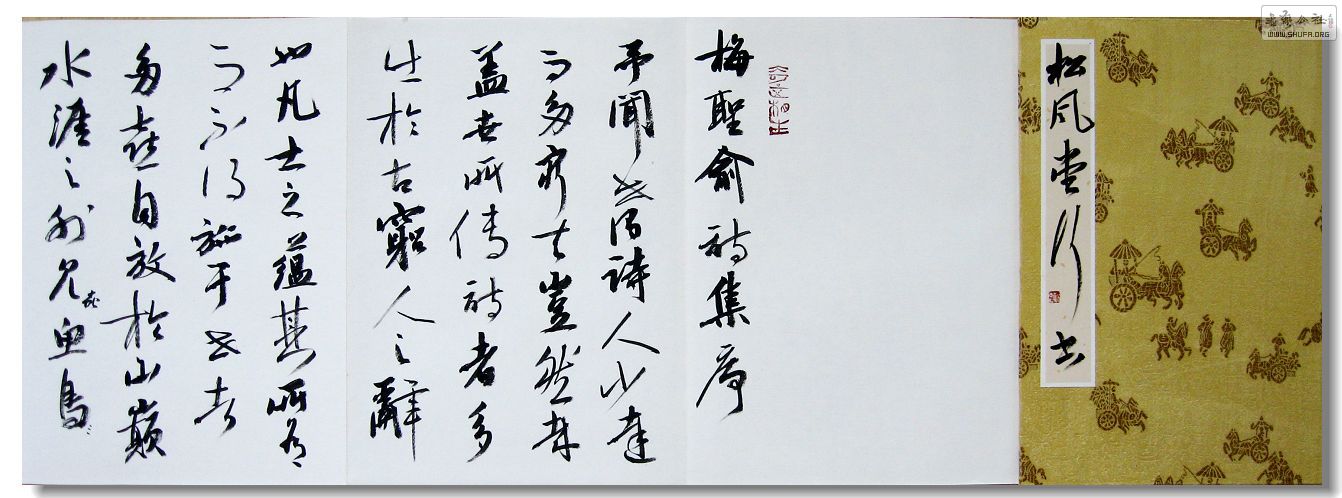 松風堂行書
梅聖俞詩集序
予聞世謂詩人少達
而多窮夫豈然哉
蓋世所傳詩者多
出於古窮人之辭
也凡士之蘊其所有
而不得施于世者
多喜自放於山巔
水涯之外見魚鳥
WWW.SHUFA.ORG